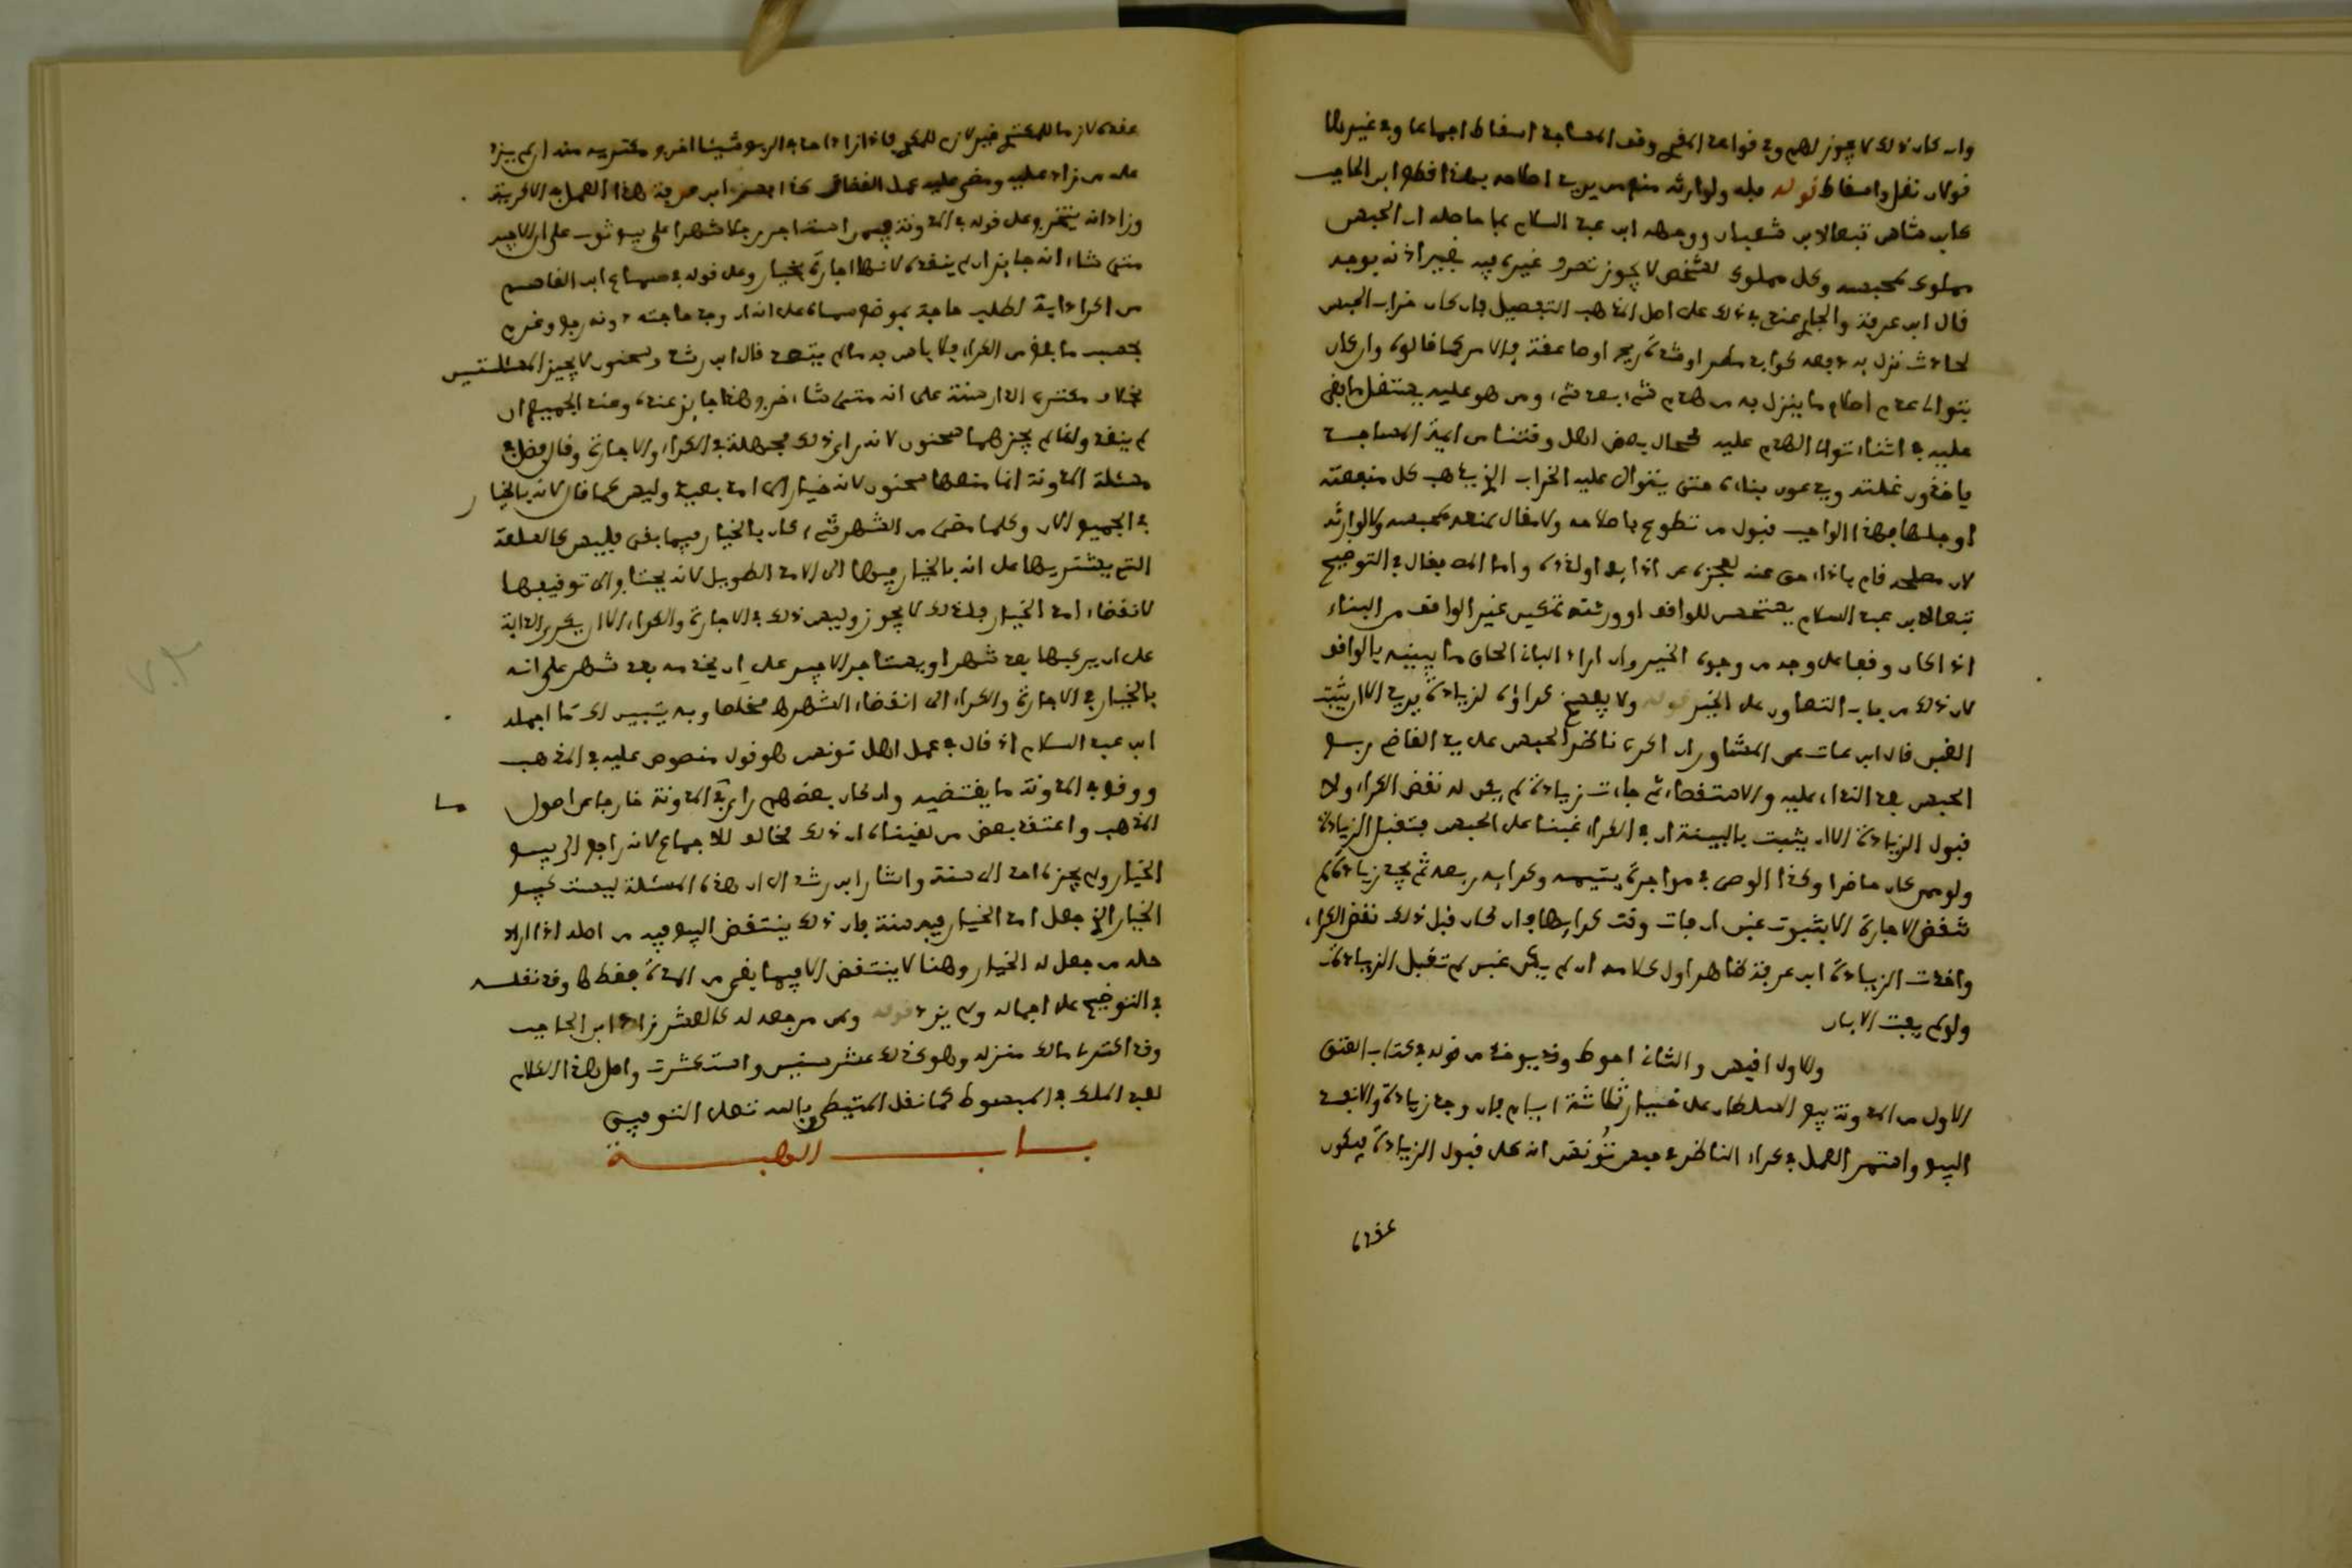 وان كان ذلك لا يجوز لهم وفي قواعد المقري وقف المساجد اسقاط اجماعا وفي غيرها
قولان نقل واسقاط قوله فله ولوارثه منع من يريد اصلاحه بهذا قطع ابن الحاجب
وابن شاس تبعا لابن شعبان ووجهه ابن عبد السلام بما حاصله ان الحبس
مملوك لمحبسه وكل مملوك لشخص لا يجوز تصرف غيره فيه بغير اذنه يوجد
قال ابن عرفة والجاري عندي في ذلك على اصل المذهب التفصيل فان كان خراب الحبس
لحادث نزل به دفعة كوابل مطر او شدة ريح او صاعقة فالامر كما قالوه وان كان
بتوالي عدم اصلاح ما ينزل به من هدم شيء بعد شيء ومن هو عليه يستغل ما بقي
عليه في اثناء توالي الهدم عليه كحال بعض اهل وقتنا من ايمة المساجد
ياخذون غلته ويدعون بناءه حتى يتوالى عليه الخراب الذي يذهب كل منفعته
او جلها فهذا الواجب قبول من تطوع باصلاحه ولا مقال بمنعه لمحبسه ولا لوارثه
لان مصلحه قام باداء حق عنه لعجزه عن ادائه او لدده واما المص فقال في التوضيح
تبعا لابن عبد السلام يستحسن للواقف او ورثته تمكين غير الواقف من البناء
اذا كان وقفا على وجه من وجوه الخير وان اراد الباني الحاق ما يبنيه بالواقف
لان ذلك من باب التعاون على الخير قوله ولا يفسخ كراؤه لزيادة يريد الا ان يثبت
الغبن قال ابن عات عن المشاور ان اكرى ناظر الحبس على يد القاضي ربع
الحبس بعد النداء عليه والاستقصاء ثم جاءت زيادة لم يكن له نقض الكراء ولا
قبول الزيادة الا ان يثبت بالبينة ان في الكراء غبنا على الحبس فتقبل الزيادة
ولو ممن كان حاضرا وكذا الوصي في مواجرة يتيمه وكرايه ربعه ثم يجد زيادة لم
تنقض الاجارة الا بثبوت غبن ان فات وقت كرايها فان كان قبل ذلك نقض الكراء
واخذت الزيادة ابن عرفة ظاهر اول كلامه ان لم يكن غبن لم تقبل الزيادة
ولو لم يفت الابان
والاول اقيس والثاني احوط وقد يوخذ من قوله في كتاب العتق
الاول من المدونة يبيع السلطان على خيار ثلاثة ايام فان وجد زيادة والا نفذ
البيع واستمر العمل في كراء الناظر في حبس تونس انه على قبول الزيادة فيكون
عقده
عقده لازما للمكتري غير لازم للمكري فاذا زاد احد في الربع شيئا اخرج مكتريه منه ان لم يزد
على من زاد عليه ومضى عليه عمل القضاة كذا ابن عرفة هذا العمل في الاكرية
وزاد انه يتخرج على قوله في المدونة فيمن استاجر رجلا شهرا على بيع ثوب على ان الاجير
متى شاء انه جايز ان لم ينقده لانها اجارة بخيار وعلى قوله في سماع ابن القاسم
من اكرى دابة لطلب حاجة بموضع سماه على انه ان وجد حاجته دونه رجع وغرم
بحسب ما بلغ من الكراء فلا باس به ما لم ينقد قال ابن رشد وسحنون لا يجيز المسئلتين
بخلاف مكتري الدار سنة على انه متى شاء خرج وهذا جايز عنده وعند الجميع ان
لم ينقد وانما لم يجزهما سحنون لانه راى ذلك مجهلة في الكراء والاجارة وقال فضل في
مسئلة المدونة انما منعها سحنون لانه خيار الى امد بعيد وليس كما قال لانه بالخيار
في الجميع الان وكلما مضى من الشهر شيء كان بالخيار فيما بقي فليس كالسلعة
التي يشتريها على انه بالخيار فيها الى الامد الطويل لانه يحتاج الى توقيفها
لانقضاء امد الخيار فلذلك لا يجوز وليس ذلك في الاجارة والكراء الا ان يكري الدابة
على ان يركبها بعد شهر او يستاجر الاجير على ان يخدمه بعد شهر على انه
بالخيار في الاجارة والكراء الى انقضاء الشهر ملخصا وبه يتبين لك ما اجمله
ابن عبد السلام اذ قال في عمل اهل تونس هو قول منصوص عليه في المذهب
ووقع في المدونة ما يقتضيه وان كان بعضهم راى في المدونة خارجا عن اصول
المذهب واعتقد بعض من لقيناه ان ذلك مخالف للاجماع لانه راجع الى بيع
الخيار ولم يجزه احد الى سنة واشار ابن رشد الى ان هذه المسئلة ليست كبيع
الخيار الذي جعل امد الخيار فيه سنة فان ذلك ينتقض البيع فيه من اصله اذا اراد
حله من جعل له الخيار وهنا لا ينتقض الا فيما بقي من المدة فقط وقد نقله
في التوضيح على اجماله ولم يزد قوله ولمن مرجعه له كالعشر زاد ابن الحاجب
وقد اكترى مالك منزله وهو كذلك عشر سنين واستكثرت واصل هذا الكلام
لعبد الملك في المبسوط كما نقل المتيطي وبالله تعالى التوفيق
بـاب الهبـة